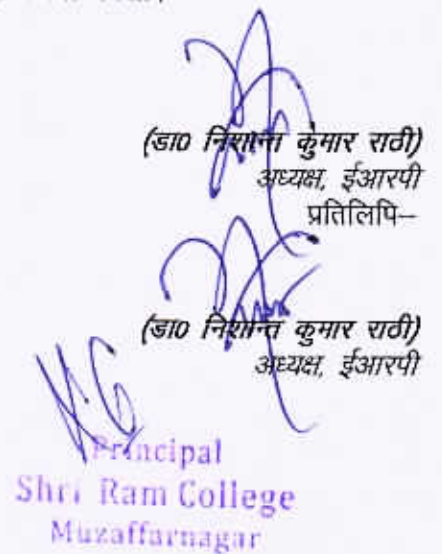 (डा० निशान्त कुमार राठी)
अध्यक्ष, ईआरपी
प्रतिलिपि–
(डा० निशान्त कुमार राठी)
अध्यक्ष, ईआरपी
Principal
Shri Ram College
Muzaffarnagar